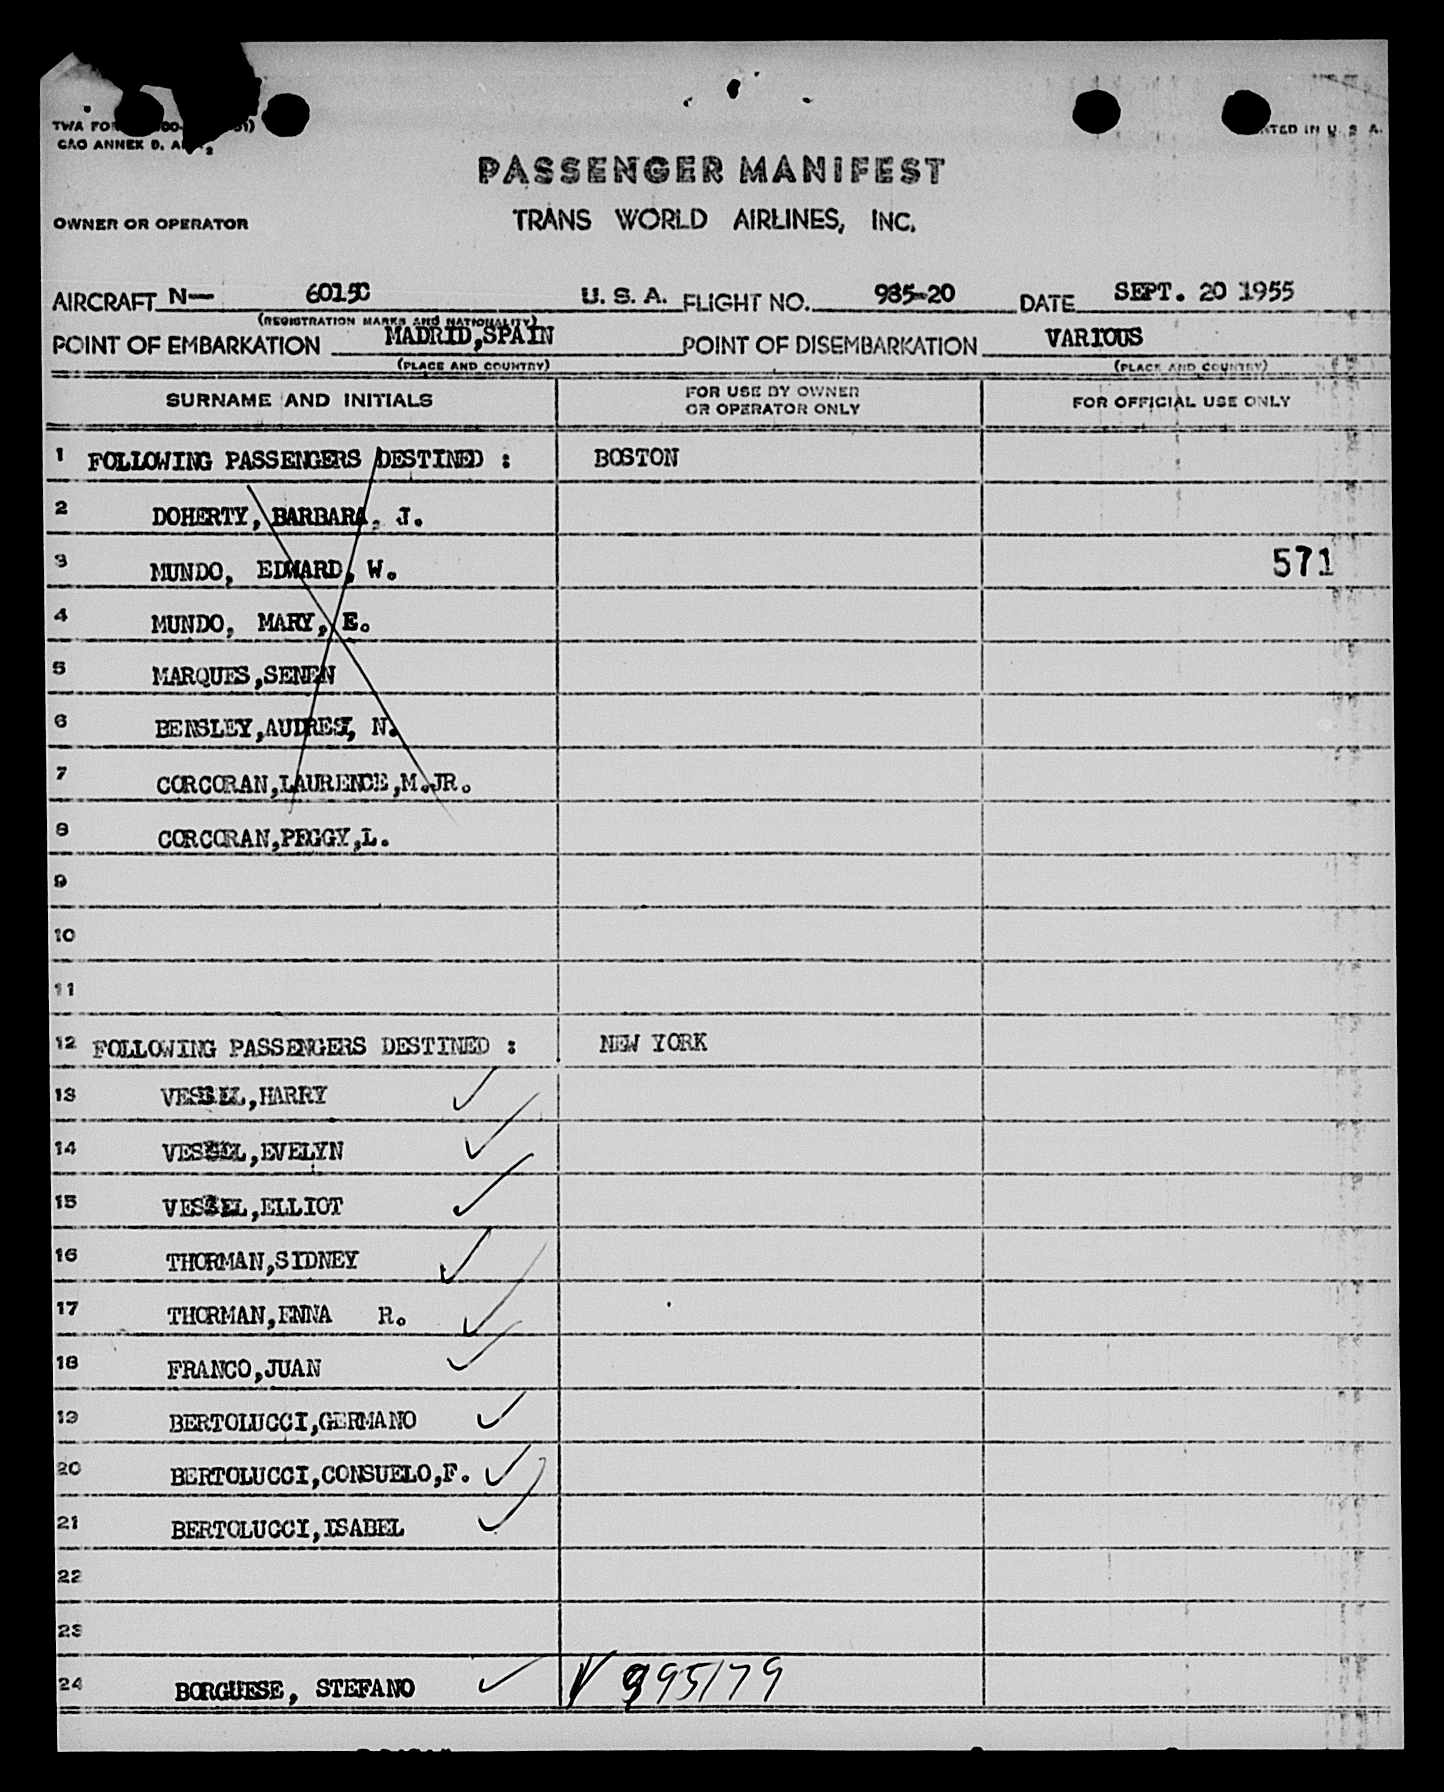 TWA FO
CAO ANNEX 9, A
PRINTED IN U. S. A.
PASSENGER MANIFEST
OWNER OR OPERATOR TRANS WORLD AIRLINES, INC.
AIRCRAFT N— 6015C U. S. A. FLIGHT NO. 985-20 DATE SEPT. 20 1955
(REGISTRATION MARKS AND NATIONALITY)
POINT OF EMBARKATION MADRID,SPAIN POINT OF DISEMBARKATION VARIOUS
(PLACE AND COUNTRY) (PLACE AND COUNTRY)
SURNAME AND INITIALS FOR USE BY OWNER OR OPERATOR ONLY FOR OFFICIAL USE ONLY
1 FOLLOWING PASSENGERS DESTINED : BOSTON
2 DOHERTY, BARBARA, J.
3 MUNDO, EDWARD, W. 571
4 MUNDO, MARY, E.
5 MARQUES,SENEN
6 BENSLEY,AUDREY, N.
7 CORCORAN,LAURENCE,M.JR.
8 CORCORAN,PEGGY,L.
9
10
11
12 FOLLOWING PASSENGERS DESTINED : NEW YORK
13 VESSEL,HARRY ✓
14 VESSEL,EVELYN ✓
15 VESSEL,ELLIOT ✓
16 THORMAN,SIDNEY ✓
17 THORMAN,ENNA R. ✓
18 FRANCO,JUAN ✓
19 BERTOLUCCI,GERMANO ✓
20 BERTOLUCCI,CONSUELO,F. ✓
21 BERTOLUCCI,ISABEL ✓
22
23
24 BORGUESE, STEFANO ✓ V 995179